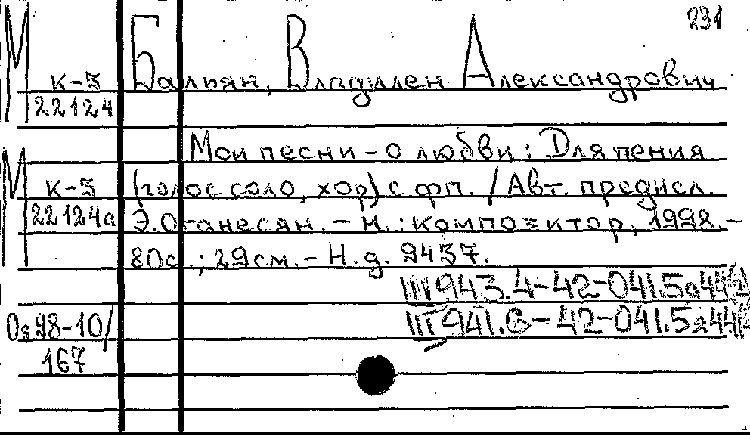 231
М к-5 Бальян, Владилен Александрович
22124
Мои песни - о любви : Для пения
М к-5 (голос соло, хор) с фп. / Авт. предисл.
22124а Э. Оганесян. - М. : Композитор, 1998. -
80с. ; 29см. - Н.д. 9437.
III 943.4-42-041.5я44
Оя98-10/ III 941.6-42-041.5я44
167